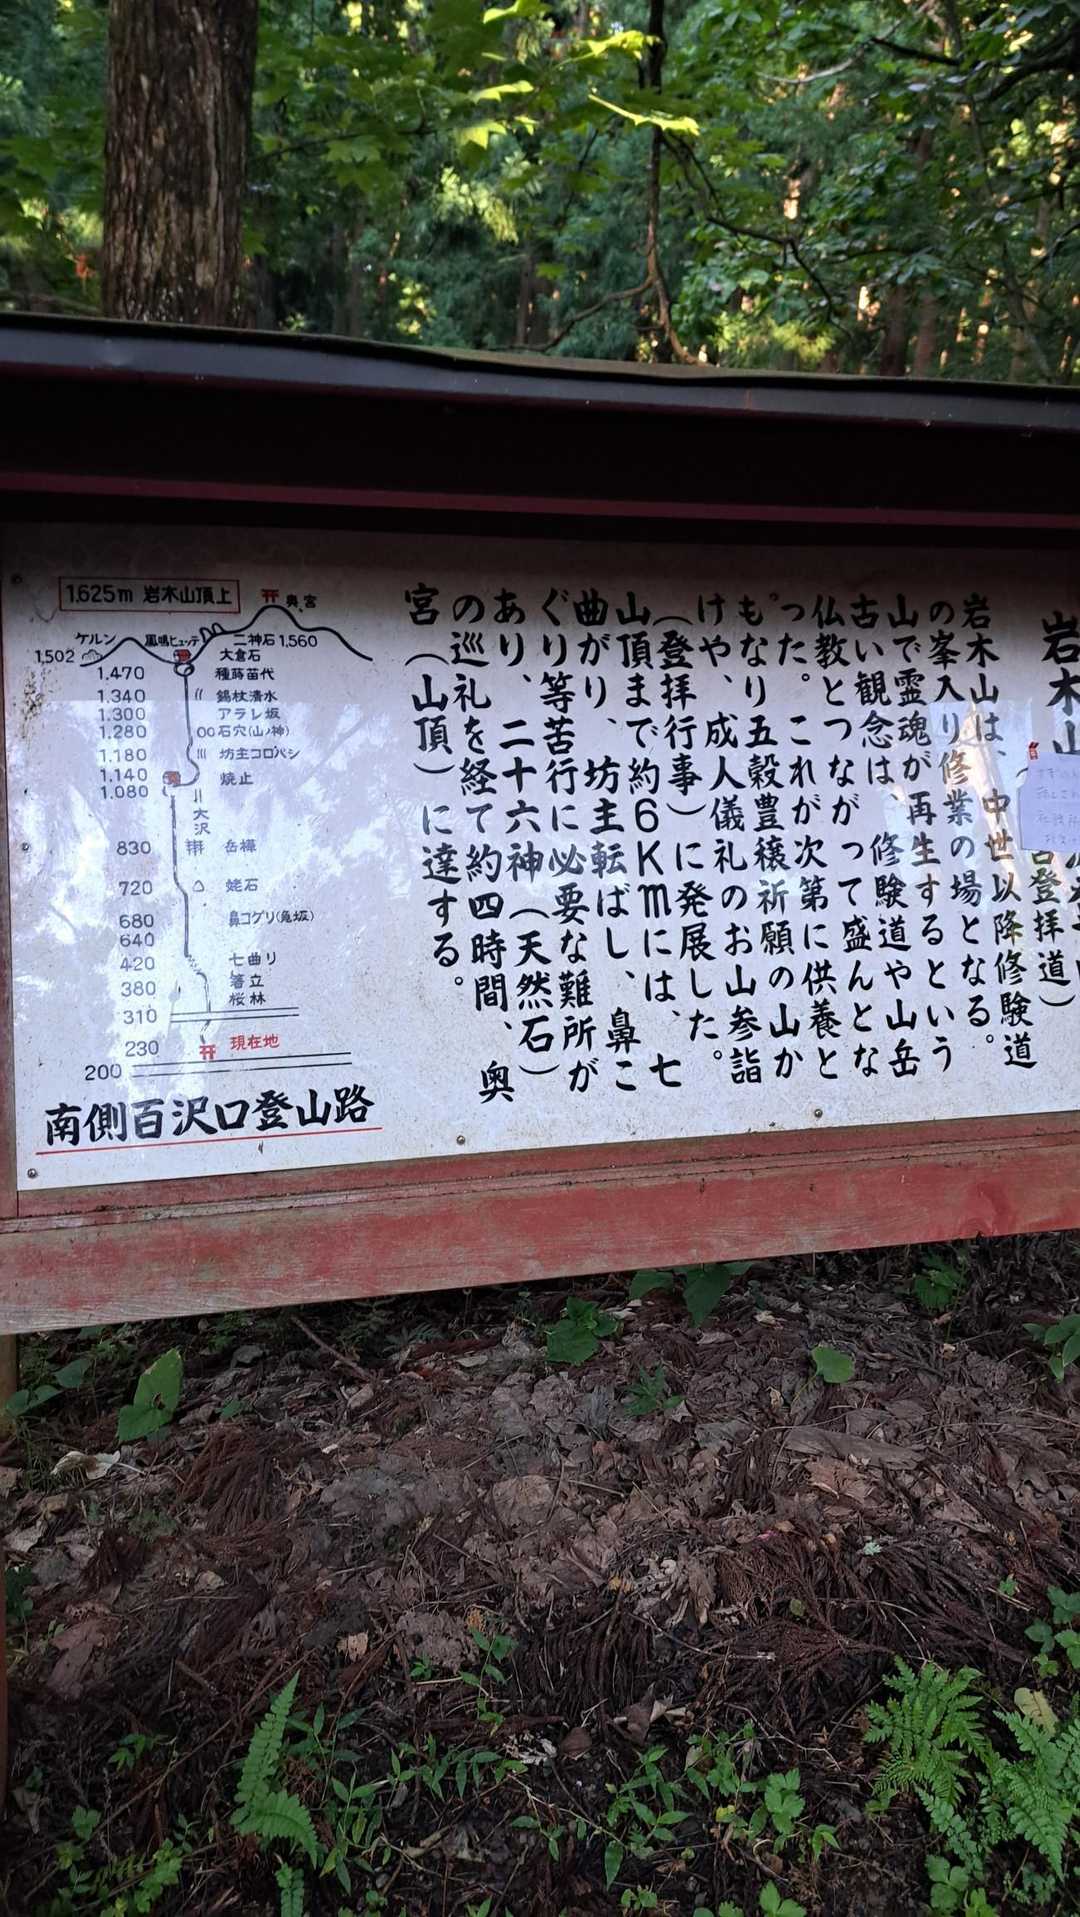 岩木山
登拝道)
岩木山は、中世以降修験道
の峯入り修業の場となる。
山で霊魂が再生するという
古い観念は、修験道や山岳
仏教とつながって盛んとな
った。これが次第に供養と
もなり五穀豊穣祈願の山か
けや、成人儀礼のお山参詣
(登拝行事)に発展した。
山頂まで約6Kmには、七
曲がり、坊主転ばし、鼻こ
ぐり等苦行に必要な難所が
あり、二十六神(天然石)
の巡礼を経て約四時間、奥
宮(山頂)に達する。
1.625m 岩木山頂上
奥宮
ケルン
鳳鳴ヒュッテ
二神石 1,560
1,502
大倉石
1.470 種蒔苗代
1.340 錫杖清水
1.300 アラレ坂
1.280 石穴(山ノ神)
1.180 坊主コロバシ
1.140 焼止
1.080
大沢
830 岳樺
720 姥石
680 鼻コグリ(亀坂)
640
420 七曲り
380 箸立
310 桜林
230 現在地
200
南側百沢口登山路